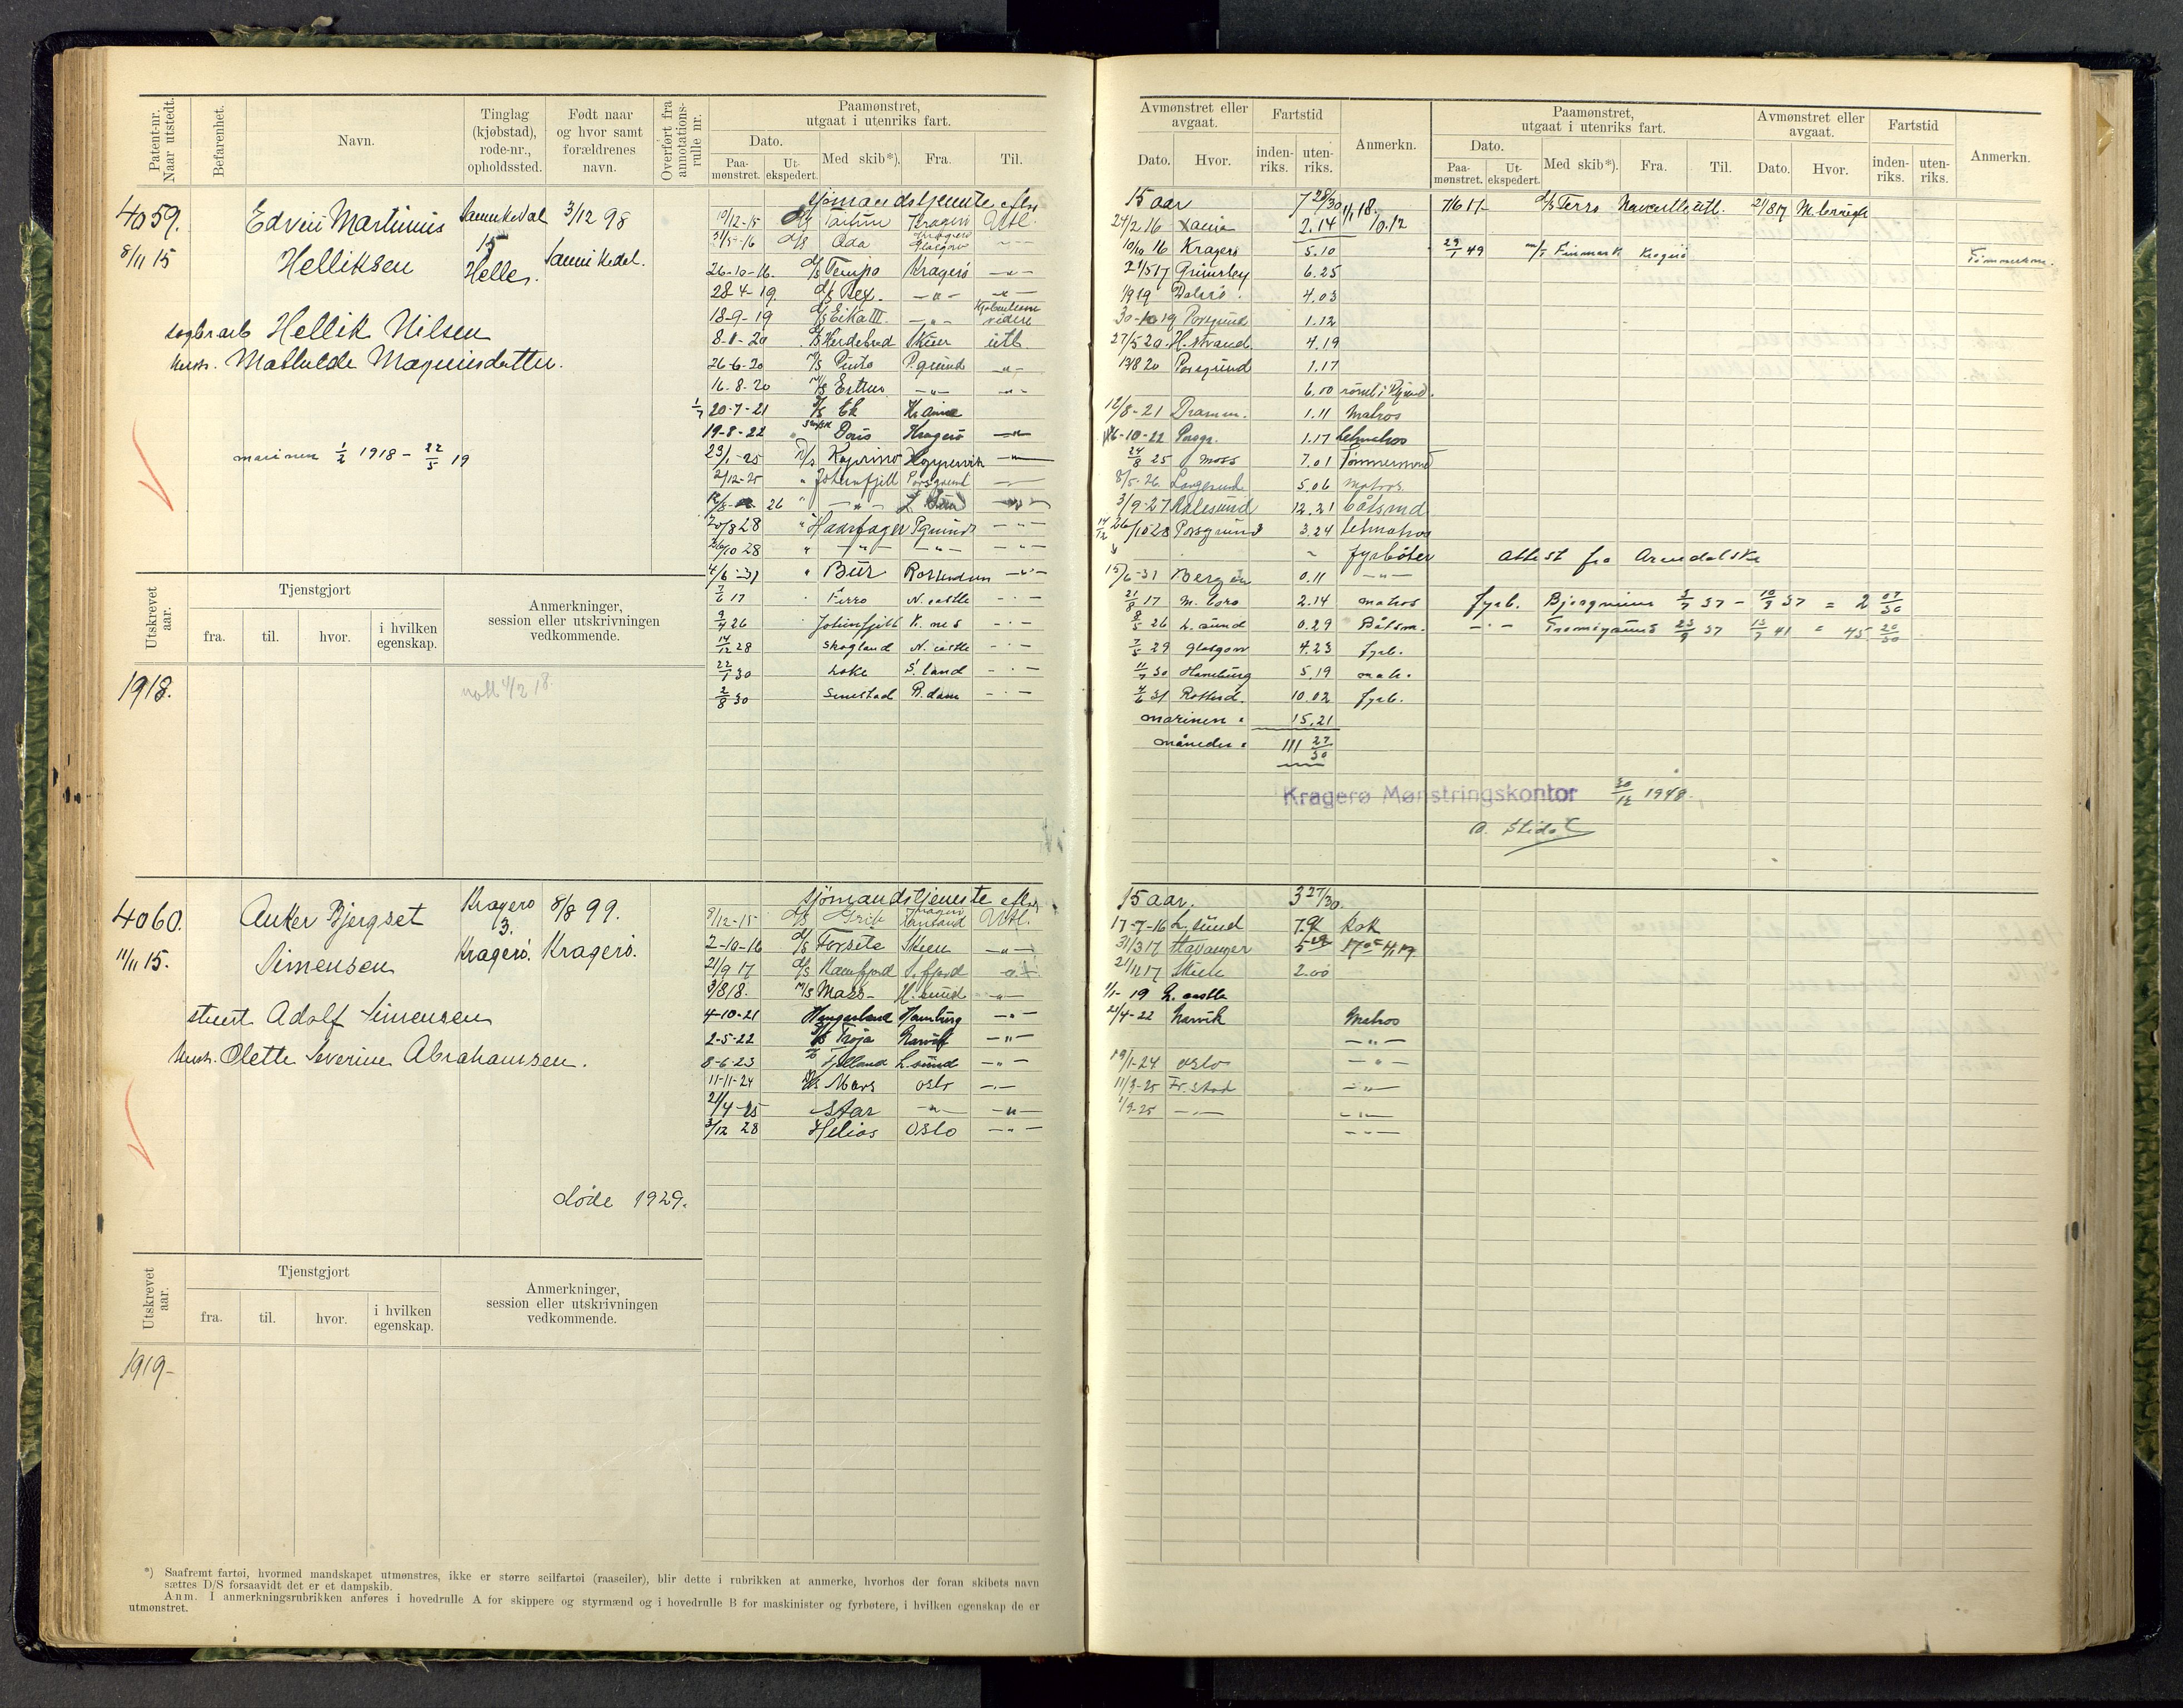 Patent-nr. Naar utstedt.
Befarenhet.
Navn.
Tinglag (kjøbstad), rode-nr., opholdssted.
Født naar og hvor samt forældrenes navn.
Overført fra annotations-rulle nr.
Paamønstret, utgaat i utenriks fart.
Dato.
Paa-mønstret.
Ut-ekspedert.
Med skib*).
Fra.
Til.
4059.
8/11 15
Edvin Martinius
Helliksen
Sannikedal
15
Helle.
3/12 98
Sannikedal.
Hellik Nilsen
Hustr. Mathilde Magnusdatter.
marinen 1/2 1918 - 22/5 19
sjömandstjeneste efter
10/12-15 Kragerö Utl.
31/5-16 d/s Oda Kragerö Glasgow
26-10-16. d/s Tempo Kragerö -"-
28-4-19. d/s Rex. -"- -"-
18-9-19 d/s Eika III -"-
8-1-20 Herdebred Skien utl
26-6-20 m/s Pinto P.grund -"-
16-8-20 m/s -"- -"-
20-7-21 d/s Ek Kr.ania
19-8-22 Doris Kragerö -"-
23/1-25 Kopervik
2/12-25 " Johnsfjell Porsgrund
20/8 28 " Haarfager Pgrund -"-
26/10 28 " -"- -"- -"-
4/6-31 " Bur Rotterdam -"-
7/6 17 Ferro N.castle -"-
9/4 26 Johnsfjell K.nes -"-
14/12 28 Skogland N.castle -"-
22/1 30 Loke S.land -"-
2/8 30 Smestad R.dam -"-
Utskrevet aar.
Tjenstgjort
fra.
til.
hvor.
i hvilken egenskap.
Anmerkninger, session eller utskrivningen vedkommende.
1918.
4060.
11/11 15.
Anker Bjergset
Simensen
Kragerö
3.
Kragerö.
8/8 99.
Kragerö.
Adolf Simensen
Hustr. Olette Severine Abrahamsen.
døde 1929.
sjömandstjeneste efter
9/12-15 d/s Utl.
2-10-16 d/s Forsete Skien -"-
21/9 17 d/s S.fjord
3/8 18. m/s Mass H.sund -"-
4-10-21 Hamburg -"-
2-5-22 Troja Narvik -"-
8-6-23 L.sund -"-
11-11-24 d/s Mars oslo -"-
21/4-25 Star -"- -"-
3/12 28 Helios oslo -"-
Utskrevet aar.
Tjenstgjort
fra.
til.
hvor.
i hvilken egenskap.
Anmerkninger, session eller utskrivningen vedkommende.
1919-
*) Saafremt fartøi, hvormed mandskapet utmønstres, ikke er større seilfartøi (raaseiler), blir dette i rubrikken at anmerke, hvorhos der foran skibets navn
sættes D/S forsaavidt det er et dampskib.
Anm. I anmerkningsrubrikken anføres i hovedrulle A for skippere og styrmænd og i hovedrulle B for maskinister og fyrbøtere, i hvilken egenskap de er
utmønstret.
Avmønstret eller avgaat.
Dato.
Hvor.
Fartstid
inden-riks.
uten-riks.
Anmerkn.
Paamønstret, utgaat i utenriks fart.
Dato.
Paa-mønstret.
Ut-ekspedert.
Med skib*).
Fra.
Til.
Avmønstret eller avgaat.
Dato.
Hvor.
Fartstid
inden-riks.
uten-riks.
Anmerkn.
15 aar 7 28/30
24/2 16 Xania 2.14
10/10 16 Kragerö 5.10
21/5 17 Grimsby 6.25
4.03
Porsgrund 1.12
27/5 20. H.strand 4.19
Porsgrund 1.17
6.00
12/8-21 Dramm. 1.11 Matros
6-10-22 Porsgr. 1.17 Letmatros
24/8 25 Moss 7.01 Tømmermand
8/5-26. Langesund 5.06 matros.
3/9-27 Aalesund 12.21 båtsmd
26/10 28 Porsgrund 3.24 letmatros
fyrböter
15/6-31 Bergen 0.11 -"-
21/8 17 2.14 matros
8/5 26 L.sund 0.29 Båtsm.
7/5 29 Glasgow 4.23 fyrb.
11/7 30 Hamburg 5.19 matr.
4/6 31 Rotterd. 10.02 fyrb.
marinen. 15.21
måneder. 111 27/30
7/6 17 d/s Ferro Newcastle utl. 21/8 17
29/1 49 m/t Finmark Kragerö Tømmerm.
Attest fra Arendalske
fyrb. 3/7 37 - 10/9 37 = 2 07/30
-"- 23/9 37 13/7 41 = 45 20/30
Kragerø Mønstringskontor 30/12 1948.
15 aar. 3 27/30.
17-7-16 L.sund kok
31/3 17 Stavanger
21/11 17 Skien 2.00
1/1-19 castle
21/4-22 Narvik Matros
-"-
19/1-24 oslo -"-
11/3-25 Fr.stad -"-
1/9-25 -"- -"-
-"-